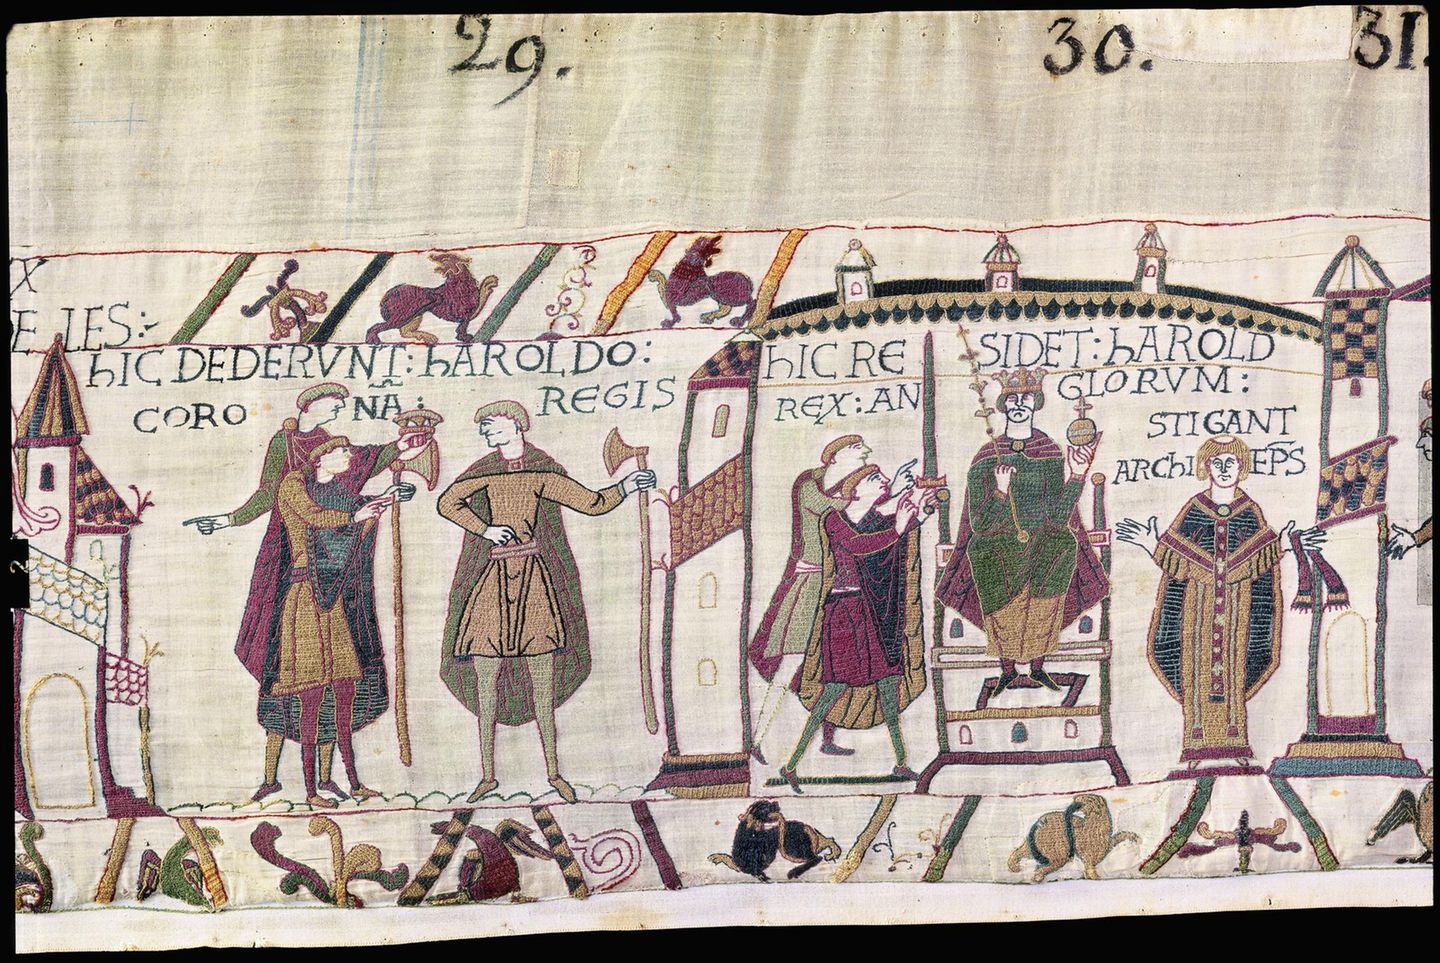 29.
30.
31.
X
E LES:
hIC DEDERVNT: hAROLDO:
CORONA:
REGIS
hIC RESIDET: hAROLD
REX: ANGLORVM:
STIGANT
ARChIEPS